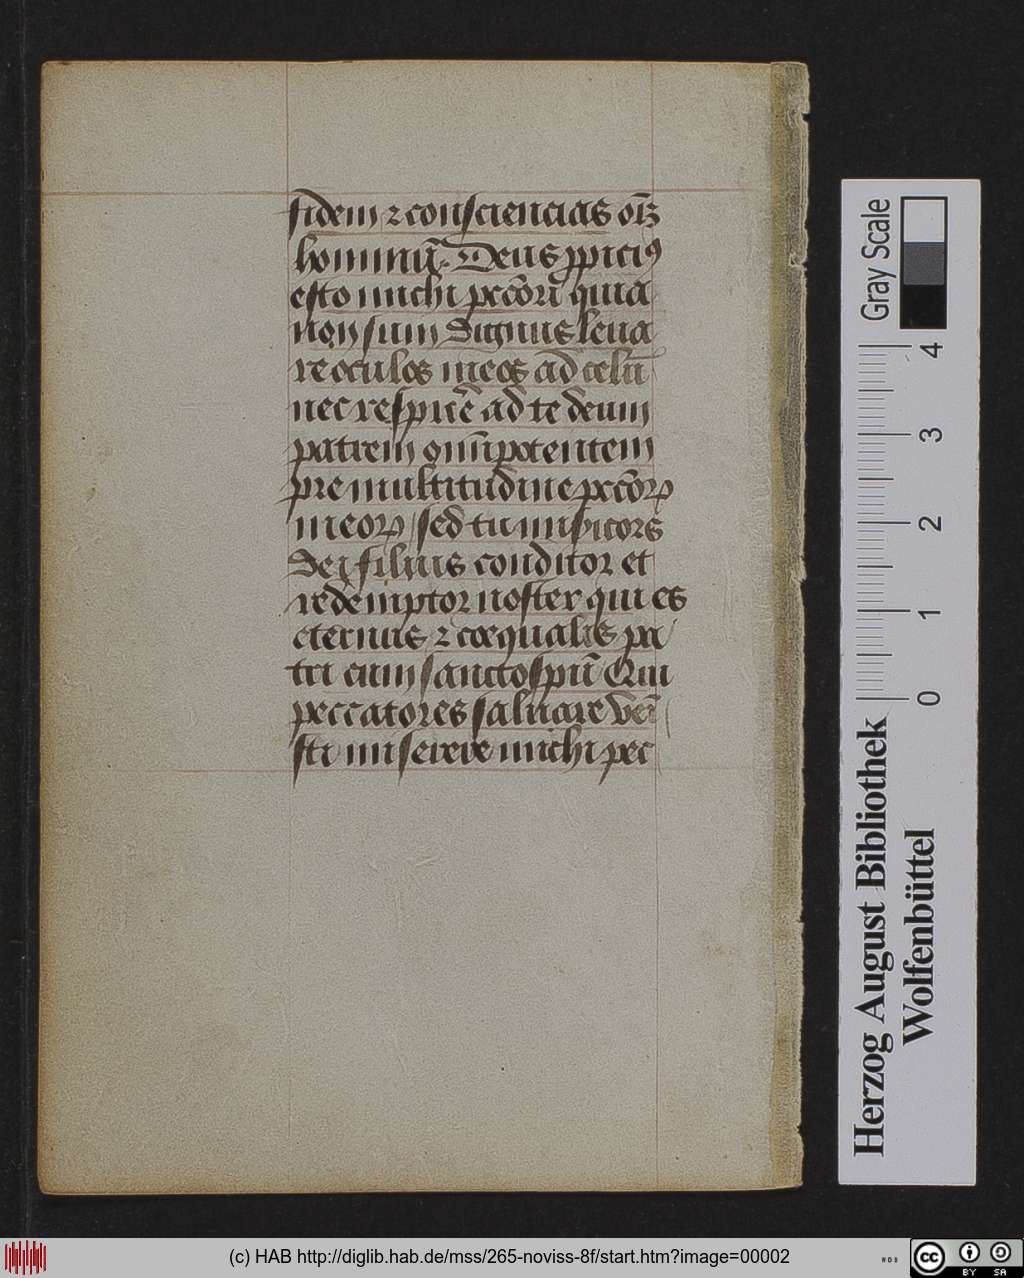 fidem ⁊ consciencias oīb
hominū. Deus ppicius
esto michi pctōri quia
non sum dignus leua
re oculos meos ad celū
nec respicē ad te deum
patrem omīpotentem
pre multitudine pctōrꝝ
meorꝝ sed tu misicors
dei filius conditor et
redemptor noster qui es
eternus ⁊ coequalis pa
tri cum sancto spū Qui
peccatores saluare veni
sti miserere michi pec
Gray Scale
4
3
2
1
0
Herzog August Bibliothek
Wolfenbüttel
(c) HAB http://diglib.hab.de/mss/265-noviss-8f/start.htm?image=00002
cc BY SA